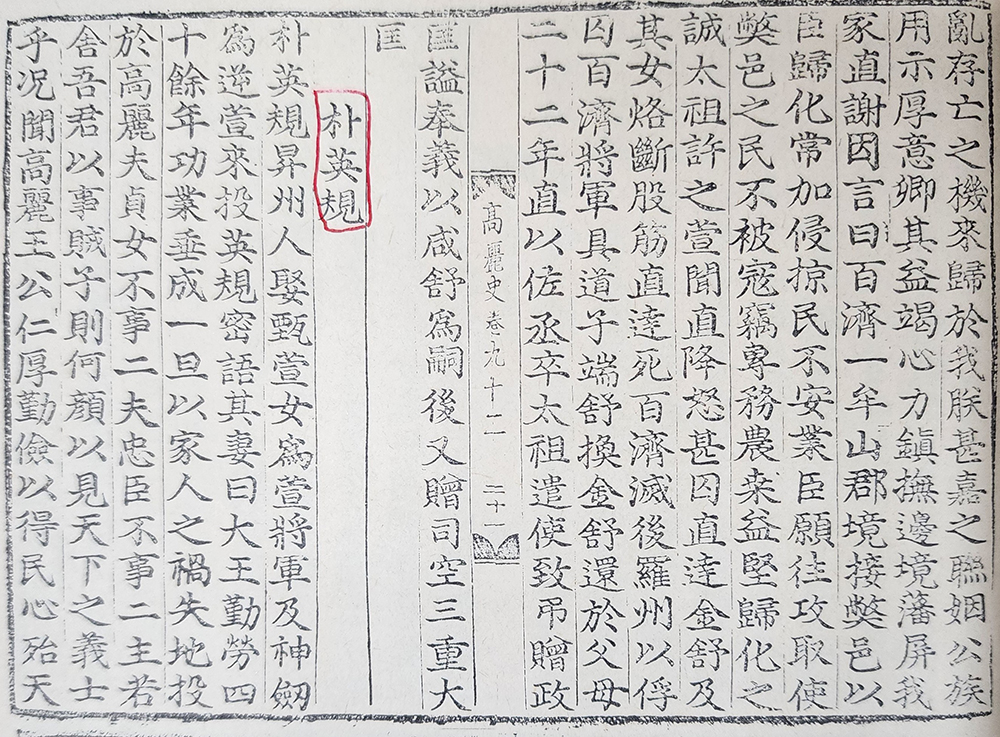 亂存亡之機來歸於我朕甚嘉之聯姻公族
用示厚意卿其益竭心力鎮撫邊境藩屏我
家直謝因言曰百濟一牟山郡境接弊邑以
臣歸化常加侵掠民不安業臣願往攻取使
弊邑之民不被寇竊專務農桒益堅歸化之
誠太祖許之萱聞直降怒甚囚直逹金舒及
其女烙斷股筋直逹死百濟滅後羅州以俘
囚百濟將軍具道子端舒換金舒還於父母
二十二年直以佐丞卒太祖遣使致吊贈政
高麗史卷九十二 二十一
匡謚奉義以咸舒爲嗣後又贈司空三重大
匡
朴英規
朴英規昇州人娶甄萱女爲萱將軍及神劒
爲逆萱來投英規密語其妻曰大王勤勞四
十餘年功業垂成一旦以家人之禍失地投
於高麗夫貞女不事二夫忠臣不事二主若
舍吾君以事賊子則何顔以見天下之義士
乎況聞高麗王公仁厚勤儉以得民心殆天